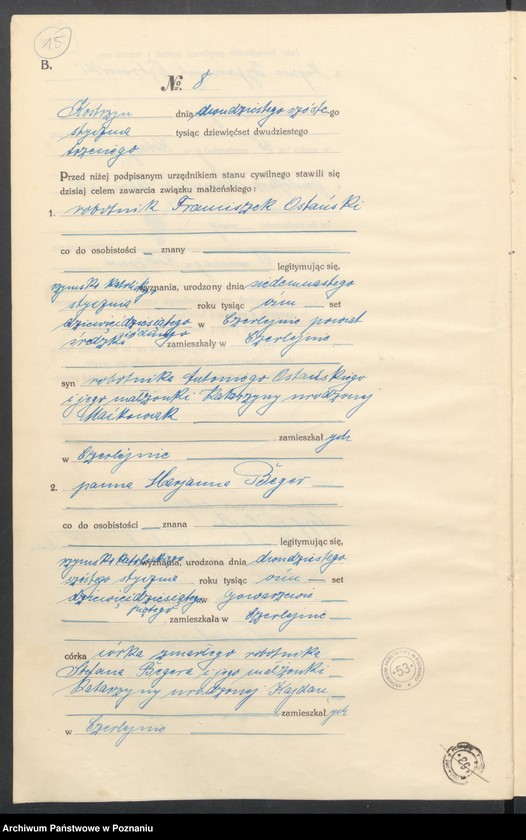 15
B.
№ 8
Kostrzyn dnia dwudziestego szóstego
stycznia tysiąc dziewięćset dwudziestego
trzeciego
Przed niżej podpisanym urzędnikiem stanu cywilnego stawili się
dzisiaj celem zawarcia związku małżeńskiego:
1. robotnik Franciszek Ostański
co do osobistości znany
legitymując się,
rzymsko katolickiego wyznania, urodzony dnia siedemnastego
stycznia roku tysiąc ośm set
dziewięćdziesiątego siódmego w Czerlejnie powiat
średzki zamieszkały w Czerlejnie
syn robotnika Antoniego Ostańskiego
i jego małżonki Katarzyny urodzonej
zamieszkałych
w Czerlejnie
2. panna Marjanna Beger
co do osobistości znana
legitymując się,
rzymsko katolickiego wyznania, urodzona dnia dwudziestego
szóstego stycznia roku tysiąc ośm set
dziewięćdziesiątego piątego w
zamieszkała w Czerlejnie
córka zmarłego robotnika
Stefana Begera i jego małżonki
Katarzyny urodzonej Kajdan
zamieszkałych
w Czerlejnie
53
53
Archiwum Państwowe w Poznaniu